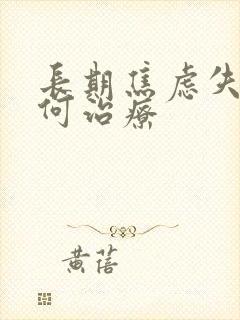 長期焦虑失
何治療
黄蓓